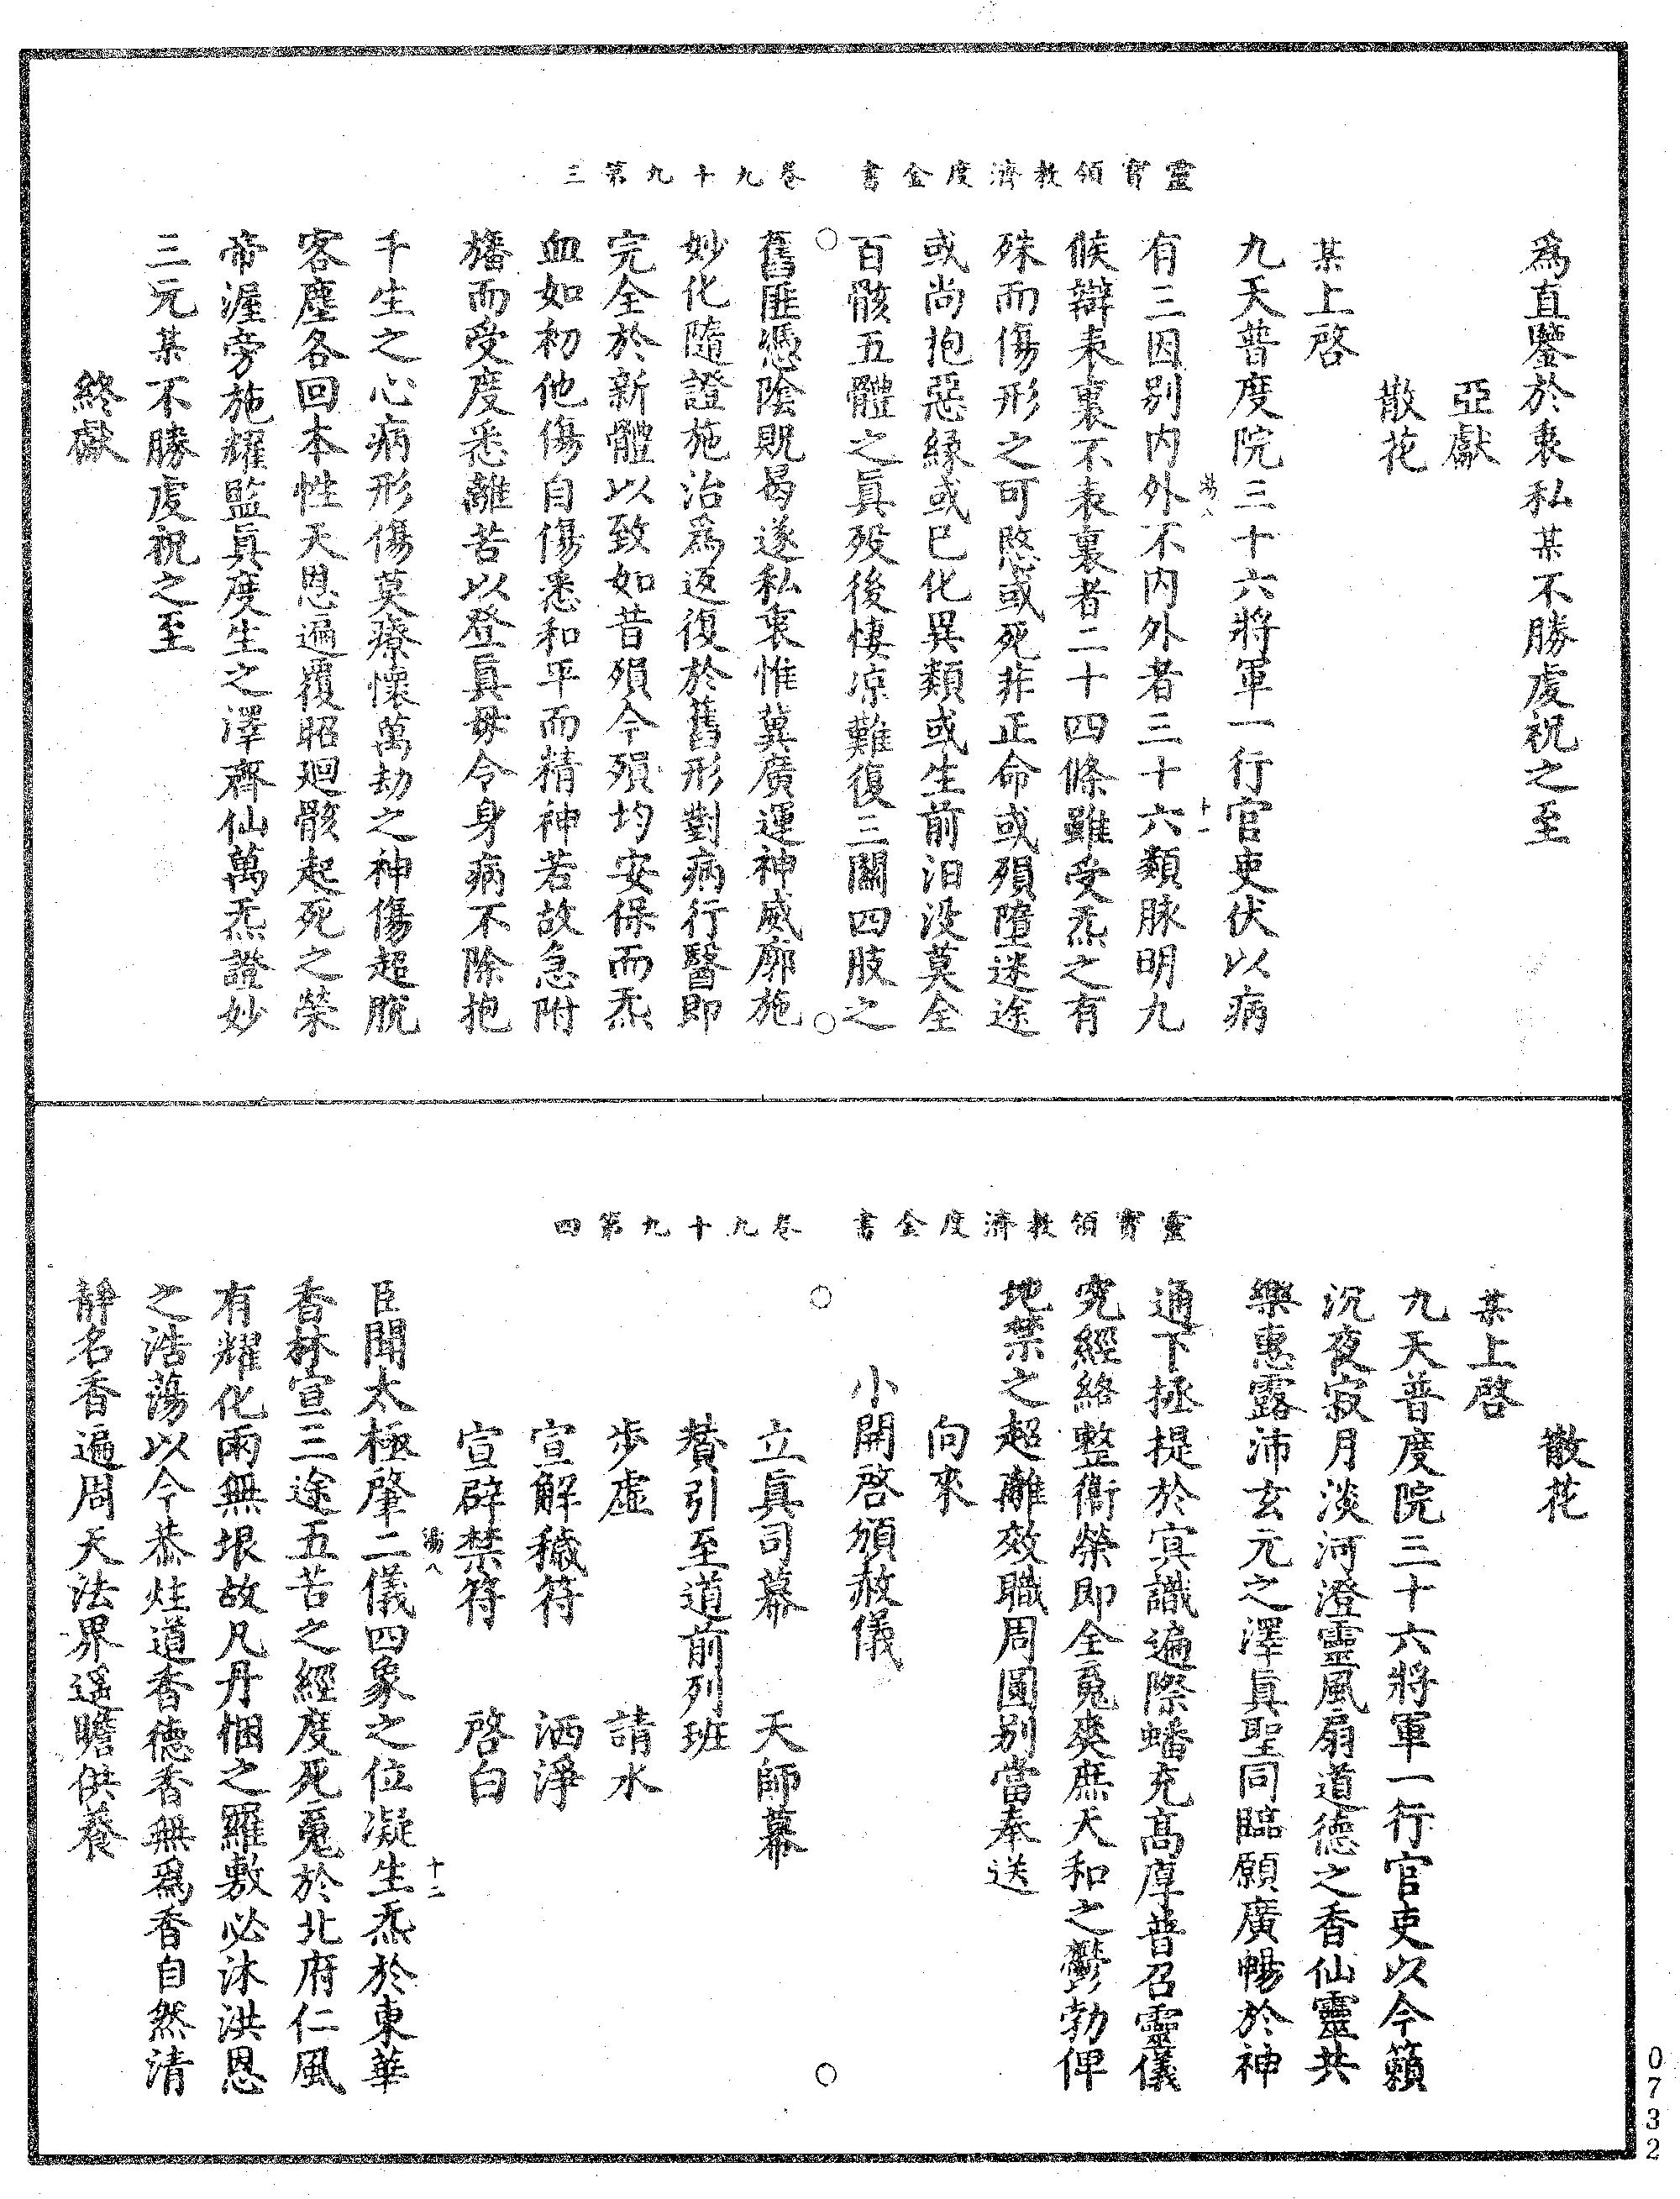 靈寶領教濟度金書　卷九十九第三
爲直鑒於衷私某不勝虔祝之至
亞獻
散花
某上啓
九天普度院三十六將軍一行官吏伏以病
有三因別内外不内外者三十六類脉明九
候辯表裏不表裏者二十四條雖受炁之有
殊而傷形之可愍或死非正命或殞墮迷途
或尚抱惡縁或已化異類或生前汨没莫全
百骸五體之眞殁後悽凉難復三關四肢之
舊匪憑陰貺曷遂私衷惟冀廣運神威廓施
妙化隨證施治爲返復於舊形對病行醫即
完全於新體以致如昔殞今殞均安保而炁
血如初他傷自傷悉和平而精神若故急附
旛而受度悉離苦以登眞毋令身病不除抱
千生之心病形傷莫療懷萬劫之神傷超脱
客塵各回本性天恩遍覆昭廻骸起死之榮
帝渥旁施耀監眞度生之澤齊仙萬炁證妙
三元某不勝虔祝之至
終獻
靈寶領教濟度金書　卷九十九第四
散花
某上啓
九天普度院三十六將軍一行官吏以今籟
沉夜寂月淡河澄靈風扇道德之香仙靈共
樂惠露沛玄元之澤眞聖同臨願廣暢於神
通下拯提於冥識遍際蟠充高厚普召靈儀
究經絡整衞榮即全䰟爽庶天和之鬱勃俾
地禁之超離效職周圓别當奉送
向來
小開啓頒赦儀
立眞司幕　天師幕
賛引至道前列班
步虛　請水
宣解穢符　洒淨
宣辟禁符　啓白
臣聞太極肇二儀四象之位凝生炁於東華
香林宣三途五苦之經度死䰟於北府仁風
有耀化雨無垠故凡丹悃之羅敷必沐洪恩
之浩蕩以今恭炷道香德香無爲香自然清
靜名香遍周天法界遥瞻供養
0732